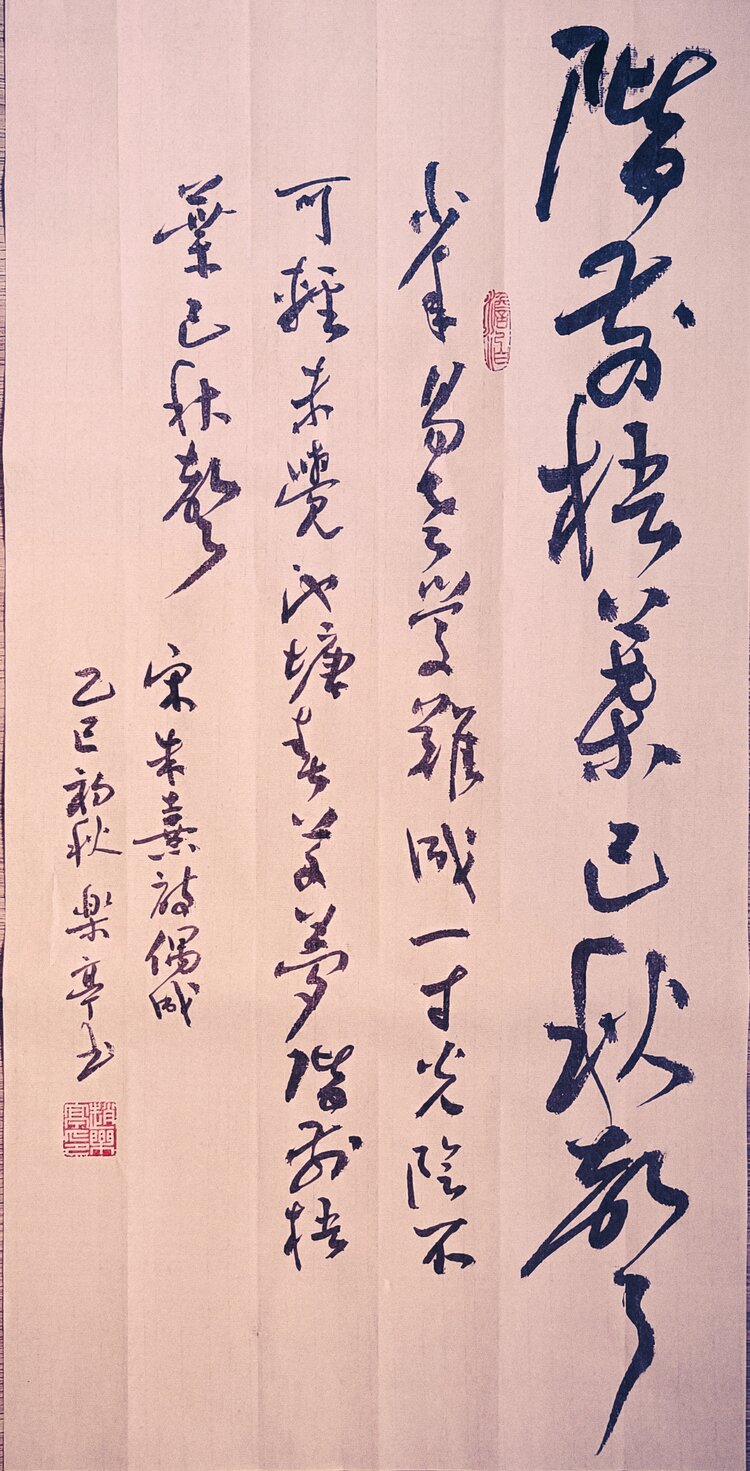 階前梧葉已秋聲
少年易老學難成一寸光陰不
可輕未覺池塘春草夢階前梧
葉已秋聲
宋朱熹詩偶成
乙巳初秋樂亭書